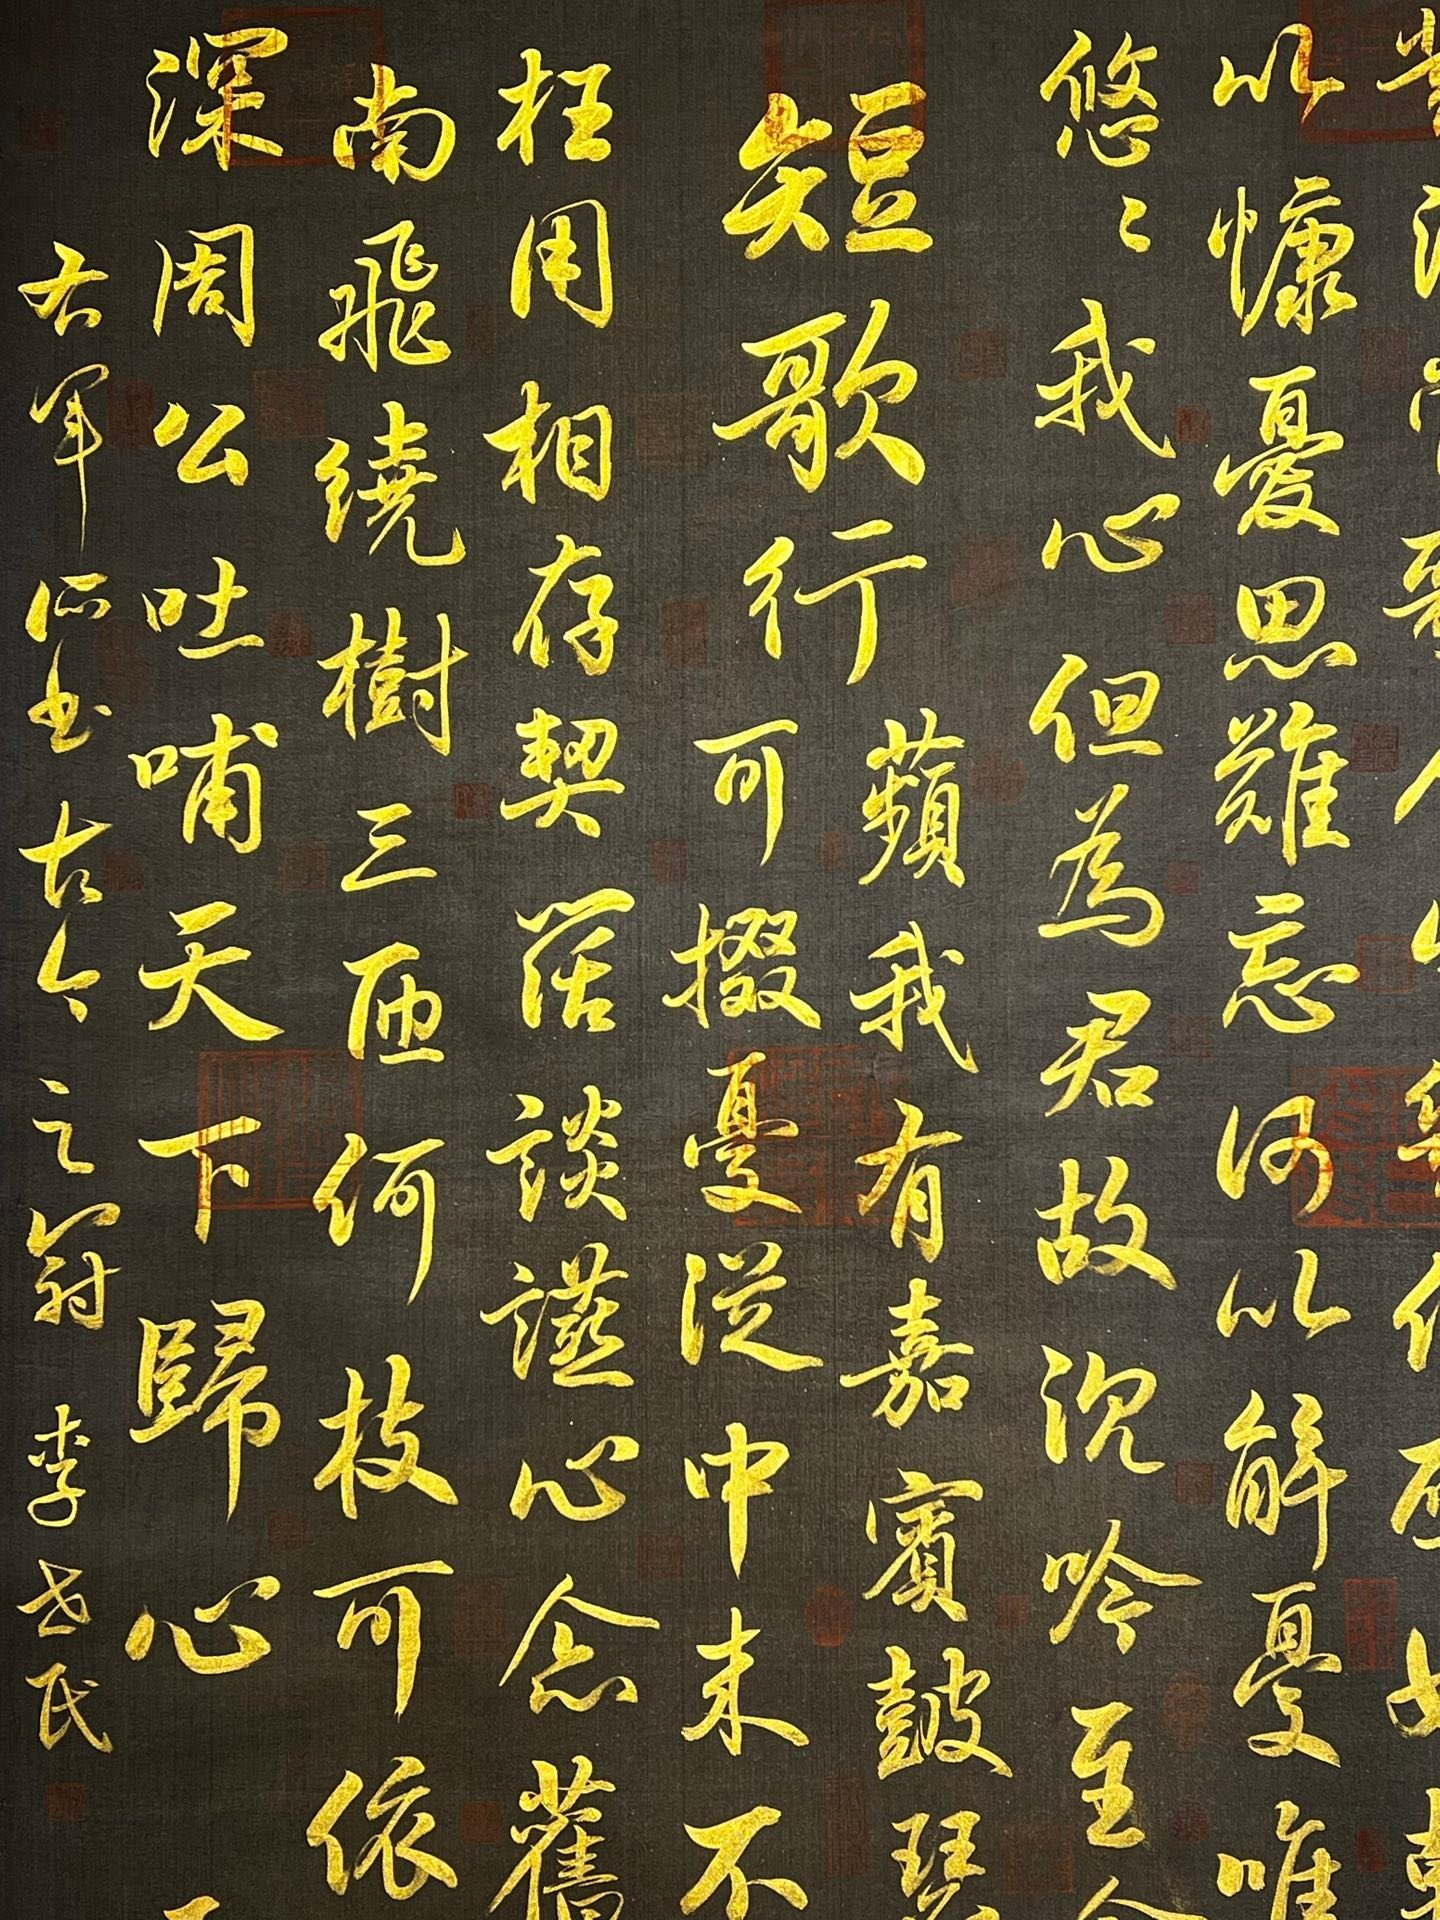 以慷憂思難忘何以解憂唯
悠〻我心但為君故沉吟至今
短歌行
蘋我有嘉賓皷瑟
可掇憂從中来不
枉用相存契闊談讌心念舊
南飛繞樹三匝何枝可依
深周公吐哺天下歸心
右軍所書古今之冠 李世民